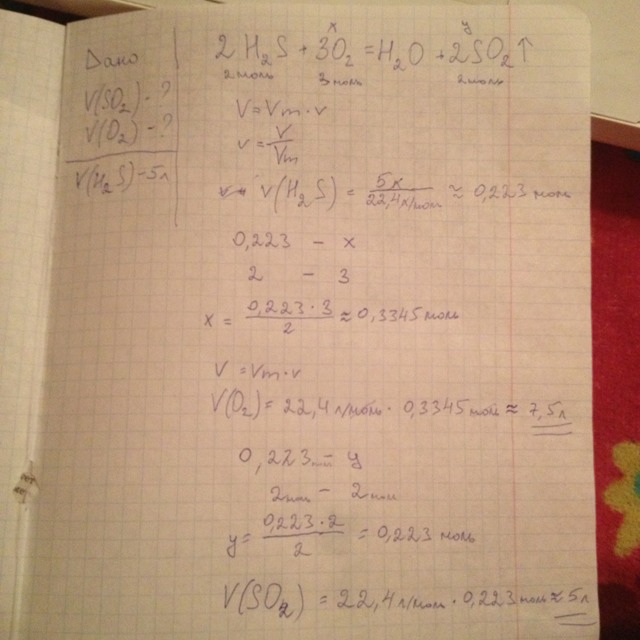 Дано
V(SO₂) - ?
V(O₂) - ?
V(H₂S) = 5л
x y
2H₂S + 3O₂ = H₂O + 2SO₂↑
2моль 3моль 2моль
V = Vm · ν
ν = V/Vm
ν(H₂S) = 5л/22,4л/моль ≈ 0,223 моль
0,223 – x
2 – 3
x = 0,223·3/2 ≈ 0,3345 моль
V = Vm · ν
V(O₂) = 22,4 л/моль · 0,3345 моль ≈ 7,5л
0,223моль – y
2моль – 2моль
y = 0,223·2/2 = 0,223 моль
V(SO₂) = 22,4 л/моль · 0,223 моль ≈ 5л